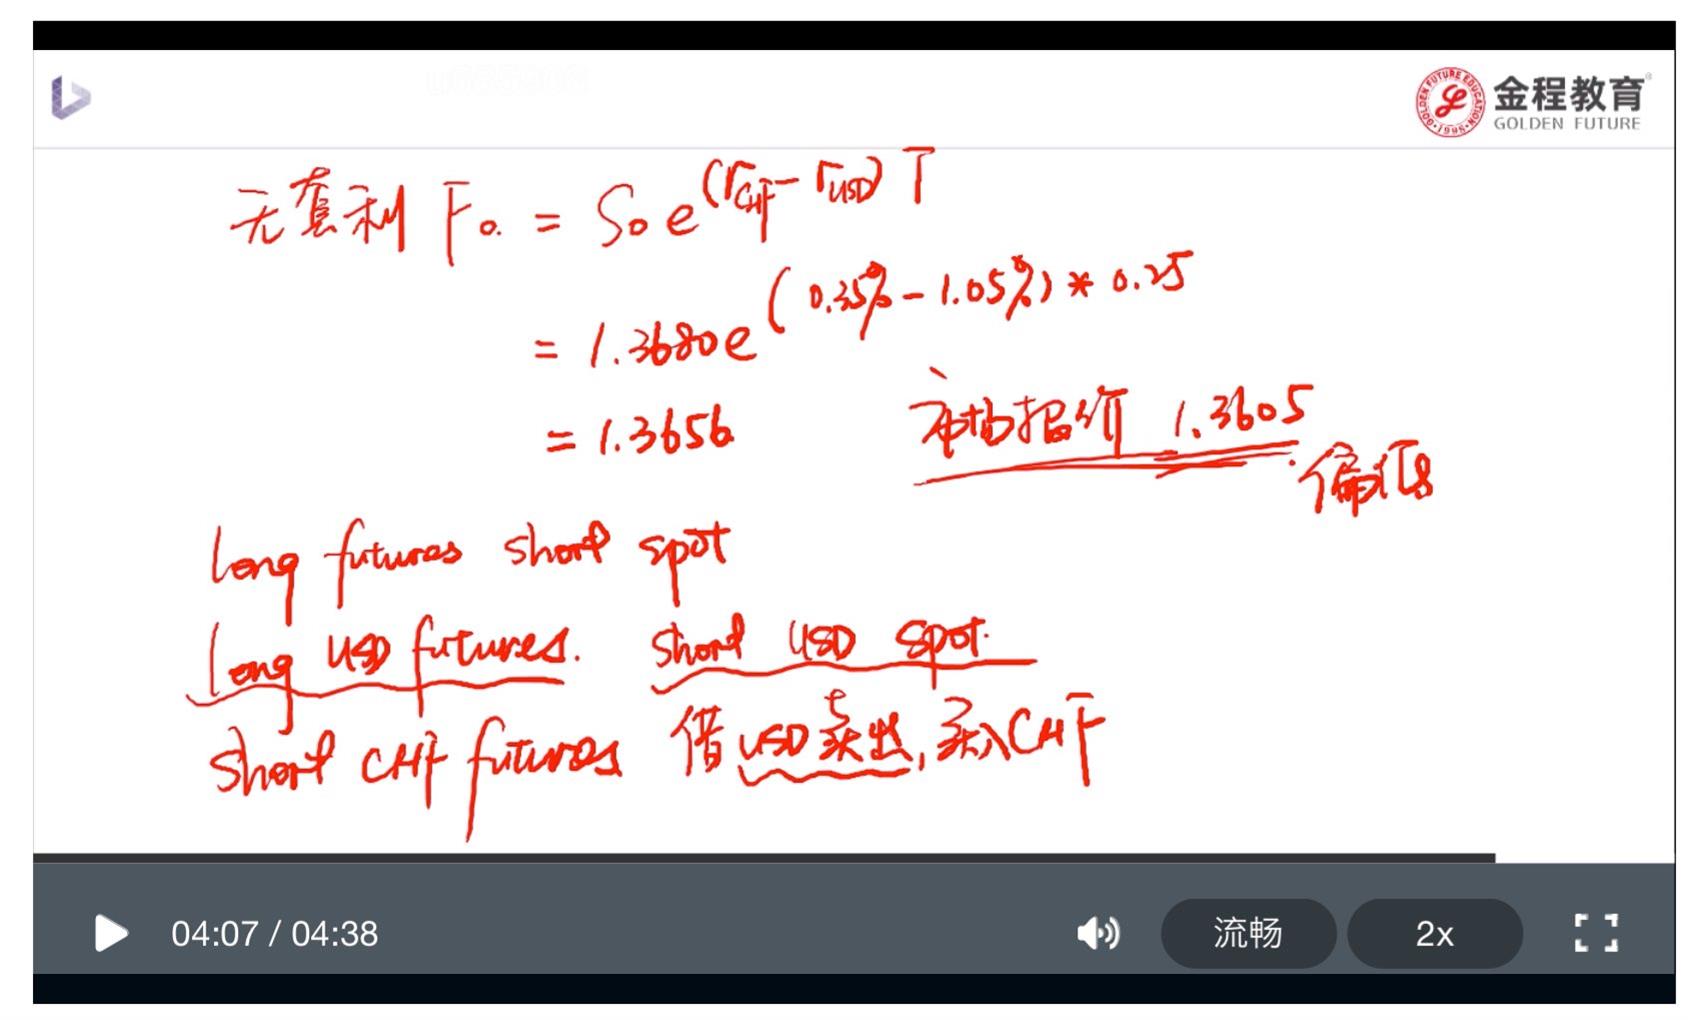 金程教育
GOLDEN FUTURE
无套利 F₀ = S₀e^(r_CHF - r_USD)T
= 1.3680e^(0.35% - 1.05%) * 0.25
= 1.3656
市场报价 1.3605
偏低
long futures short spot
long USD futures. short USD spot.
short CHF futures 借USD卖出, 买入CHF
04:07 / 04:38
流畅
2x